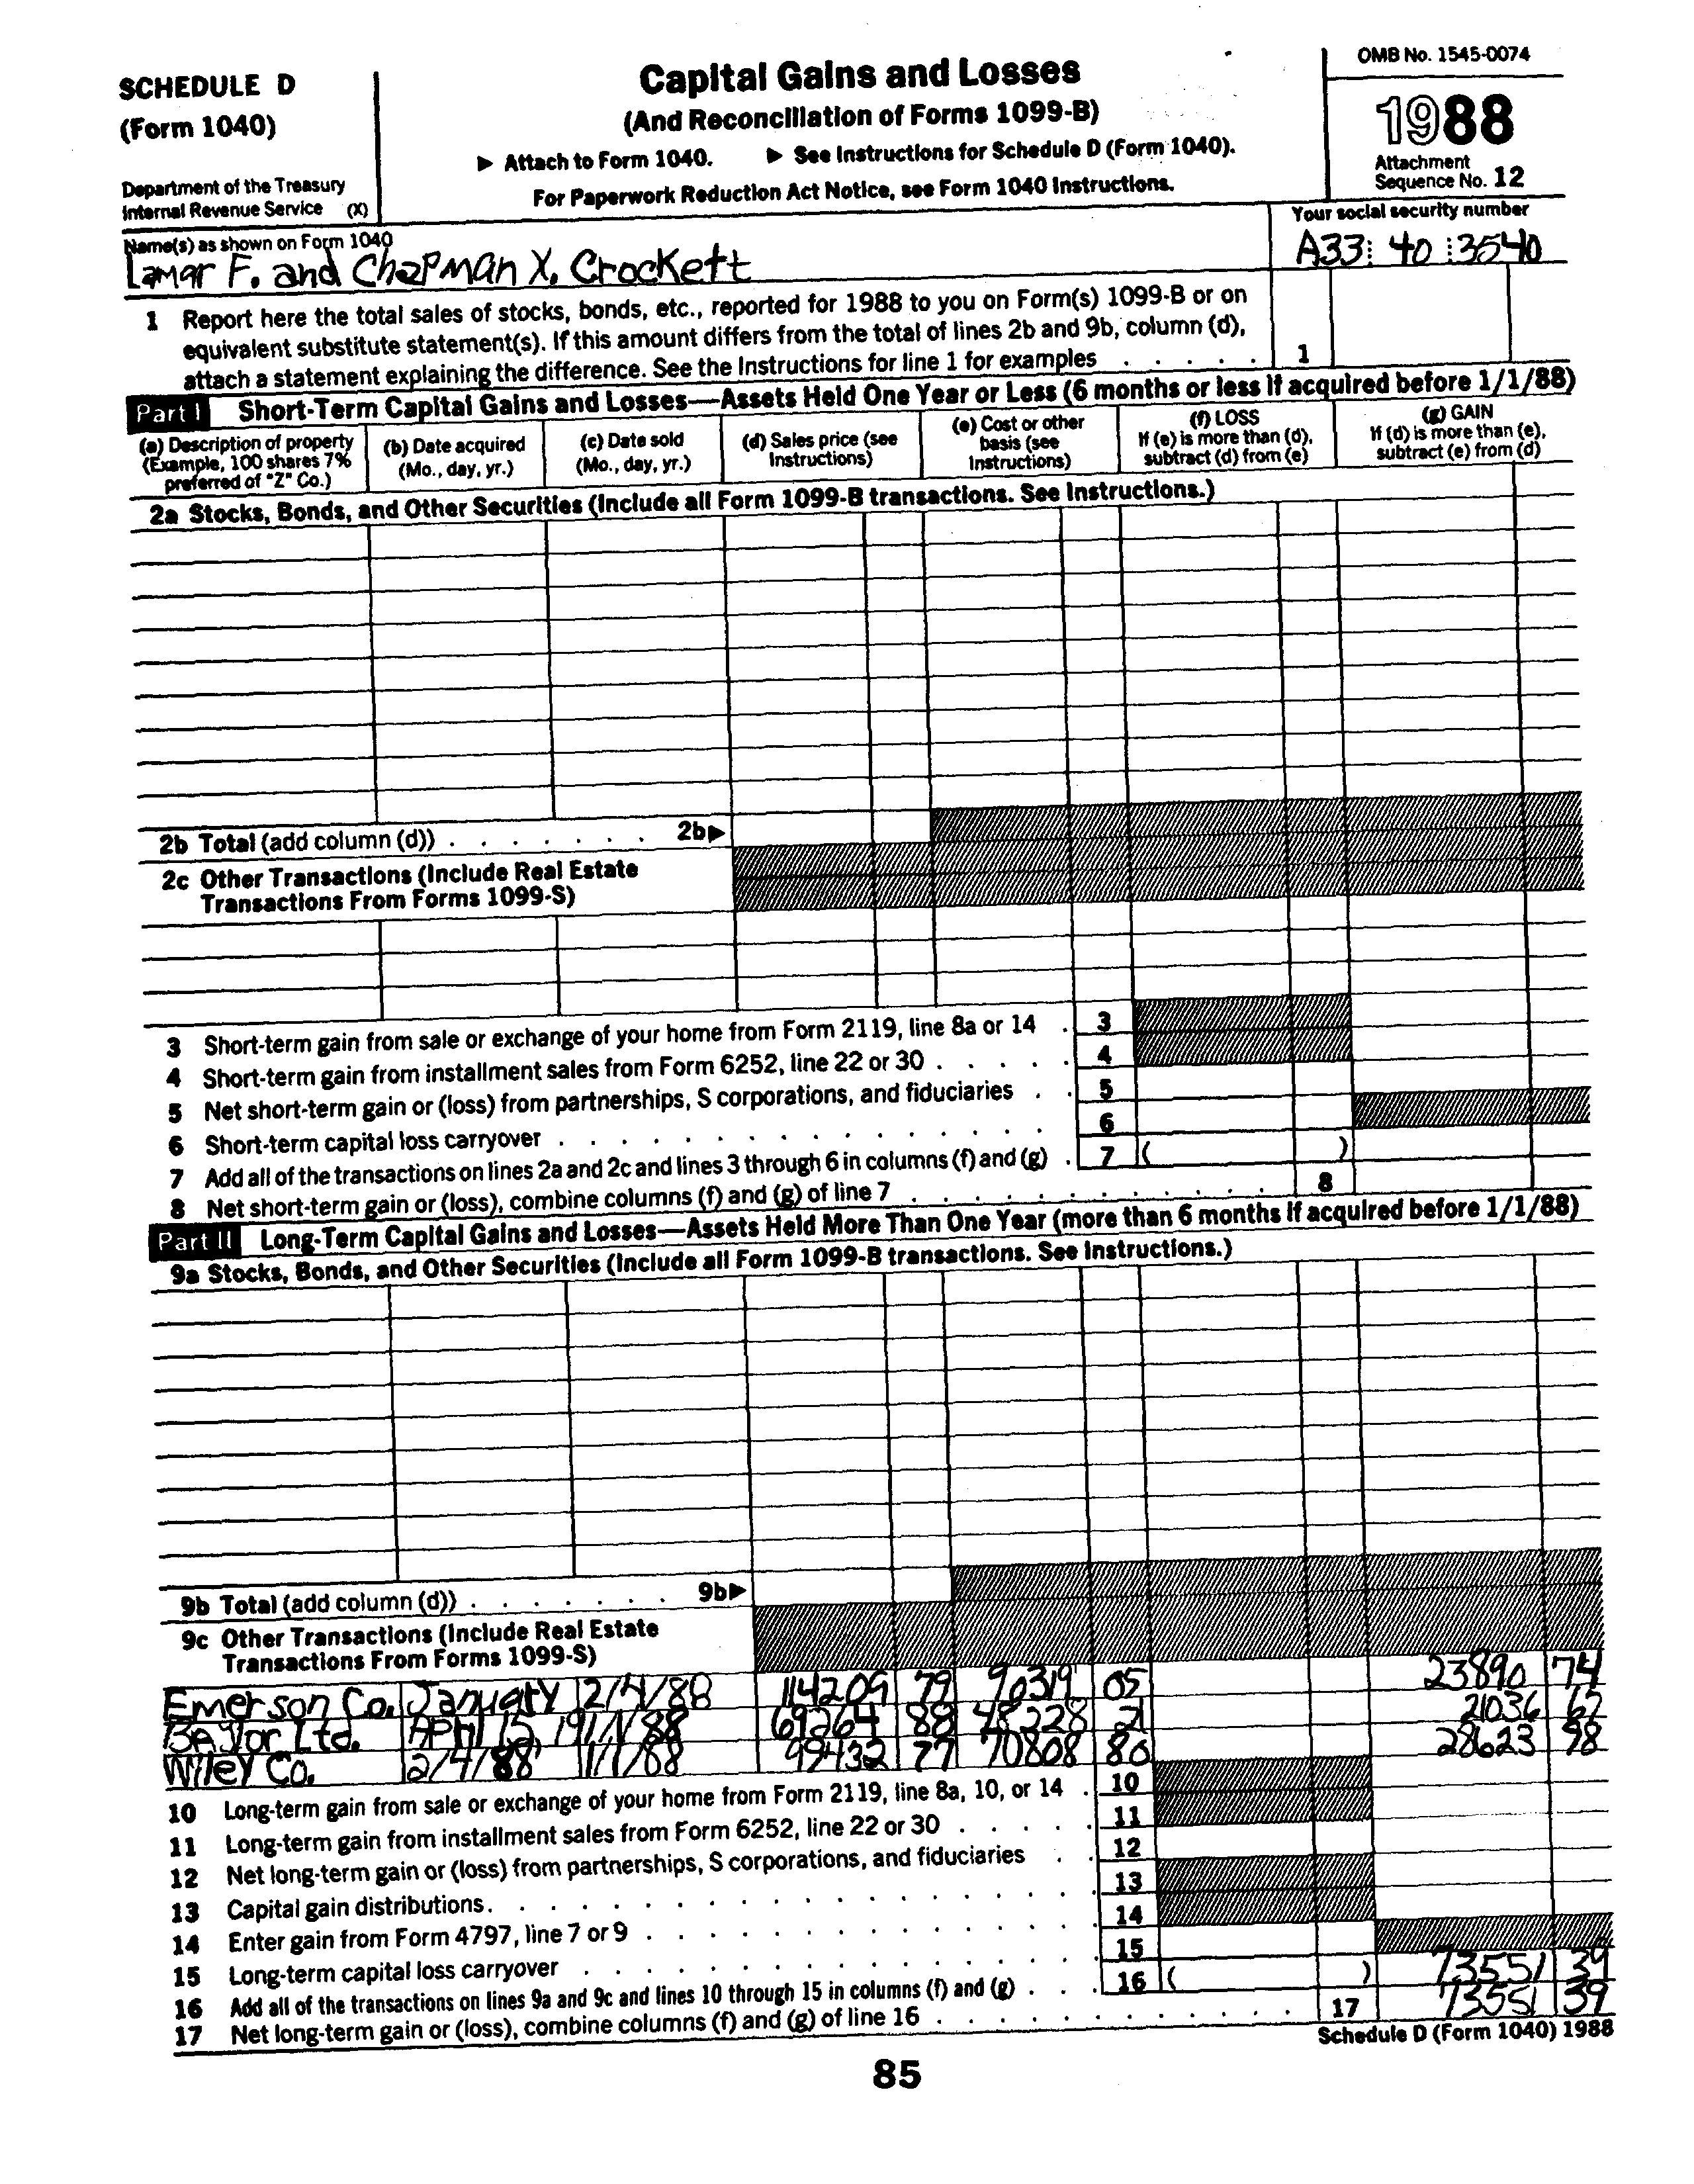 SCHEDULE D
(Form 1040)
Department of the Treasury
Internal Revenue Service (X)
Capital Gains and Losses
(And Reconciliation of Forms 1099-B)
▶ Attach to Form 1040. ▶ See Instructions for Schedule D (Form 1040).
For Paperwork Reduction Act Notice, see Form 1040 Instructions.
OMB No. 1545-0074
1988
Attachment
Sequence No. 12
Name(s) as shown on Form 1040
Lamar F. and Chapman X. Crockett
Your social security number
A33 40 3540
1 Report here the total sales of stocks, bonds, etc., reported for 1988 to you on Form(s) 1099-B or on
equivalent substitute statement(s). If this amount differs from the total of lines 2b and 9b, column (d),
attach a statement explaining the difference. See the Instructions for line 1 for examples . . . . . 1
Part I Short-Term Capital Gains and Losses—Assets Held One Year or Less (6 months or less if acquired before 1/1/88)
(a) Description of property
(Example, 100 shares 7%
preferred of "Z" Co.)
(b) Date acquired
(Mo., day, yr.)
(c) Date sold
(Mo., day, yr.)
(d) Sales price (see
Instructions)
(e) Cost or other
basis (see
Instructions)
(f) LOSS
If (e) is more than (d),
subtract (d) from (e)
(g) GAIN
If (d) is more than (e),
subtract (e) from (d)
2a Stocks, Bonds, and Other Securities (Include all Form 1099-B transactions. See Instructions.)
2b Total (add column (d)) . . . . . . . 2b▶
2c Other Transactions (Include Real Estate
Transactions From Forms 1099-S)
3 Short-term gain from sale or exchange of your home from Form 2119, line 8a or 14 . 3
4 Short-term gain from installment sales from Form 6252, line 22 or 30 . . . . . 4
5 Net short-term gain or (loss) from partnerships, S corporations, and fiduciaries . . 5
6 Short-term capital loss carryover . . . . . . . . . . . . . . . 6
7 Add all of the transactions on lines 2a and 2c and lines 3 through 6 in columns (f) and (g) . 7 ( )
8 Net short-term gain or (loss), combine columns (f) and (g) of line 7 . . . . . . . . . . . . . 8
Part II Long-Term Capital Gains and Losses—Assets Held More Than One Year (more than 6 months if acquired before 1/1/88)
9a Stocks, Bonds, and Other Securities (Include all Form 1099-B transactions. See Instructions.)
9b Total (add column (d)) . . . . . . . 9b▶
9c Other Transactions (Include Real Estate
Transactions From Forms 1099-S)
Emerson Co. January 2/4/88 114209 79 90319 05 23890 74
Baylor Ltd. April 15, 19 1/1/88 69264 88 48228 21 21036 67
Wiley Co. 2/4/88 1/1/88 99432 77 70808 80 28623 98
10 Long-term gain from sale or exchange of your home from Form 2119, line 8a, 10, or 14 . 10
11 Long-term gain from installment sales from Form 6252, line 22 or 30 . . . . . 11
12 Net long-term gain or (loss) from partnerships, S corporations, and fiduciaries . . 12
13 Capital gain distributions. . . . . . . . . . . . . . . . . . 13
14 Enter gain from Form 4797, line 7 or 9 . . . . . . . . . . . . . 14
15 Long-term capital loss carryover . . . . . . . . . . . . . . . 15
16 Add all of the transactions on lines 9a and 9c and lines 10 through 15 in columns (f) and (g) . . . 16 ( ) 73551 39
17 Net long-term gain or (loss), combine columns (f) and (g) of line 16 . . . . . . . . . . . . . 17 73551 39
Schedule D (Form 1040) 1988
85